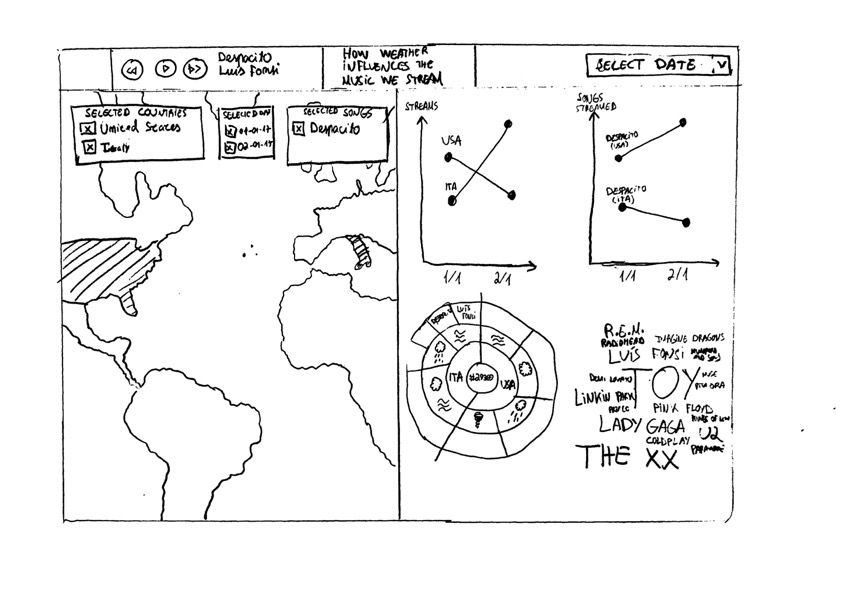 Despacito
Luís Fonsi
HOW WEATHER
INFLUENCES THE
MUSIC WE STREAM
SELECT DATE
SELECTED COUNTRIES
x United States
x Italy
SELECTED DAY
x 01-01-17
x 02-01-17
SELECTED SONGS
x Despacito
STREAMS
USA
ITA
1/1 2/1
SONGS
STREAMED
DESPACITO
(USA)
DESPACITO
(ITA)
1/1 2/1
LUÍS
FONSI
ITA
USA
R.E.M.
RADIOHEAD
IMAGINE DRAGONS
LUÍS FONSI
DEMI LOVATO
TOY
MUSE
LINKIN PARK
PINK FLOYD
LADY GAGA
U2
COLDPLAY
PARAMORE
THE XX